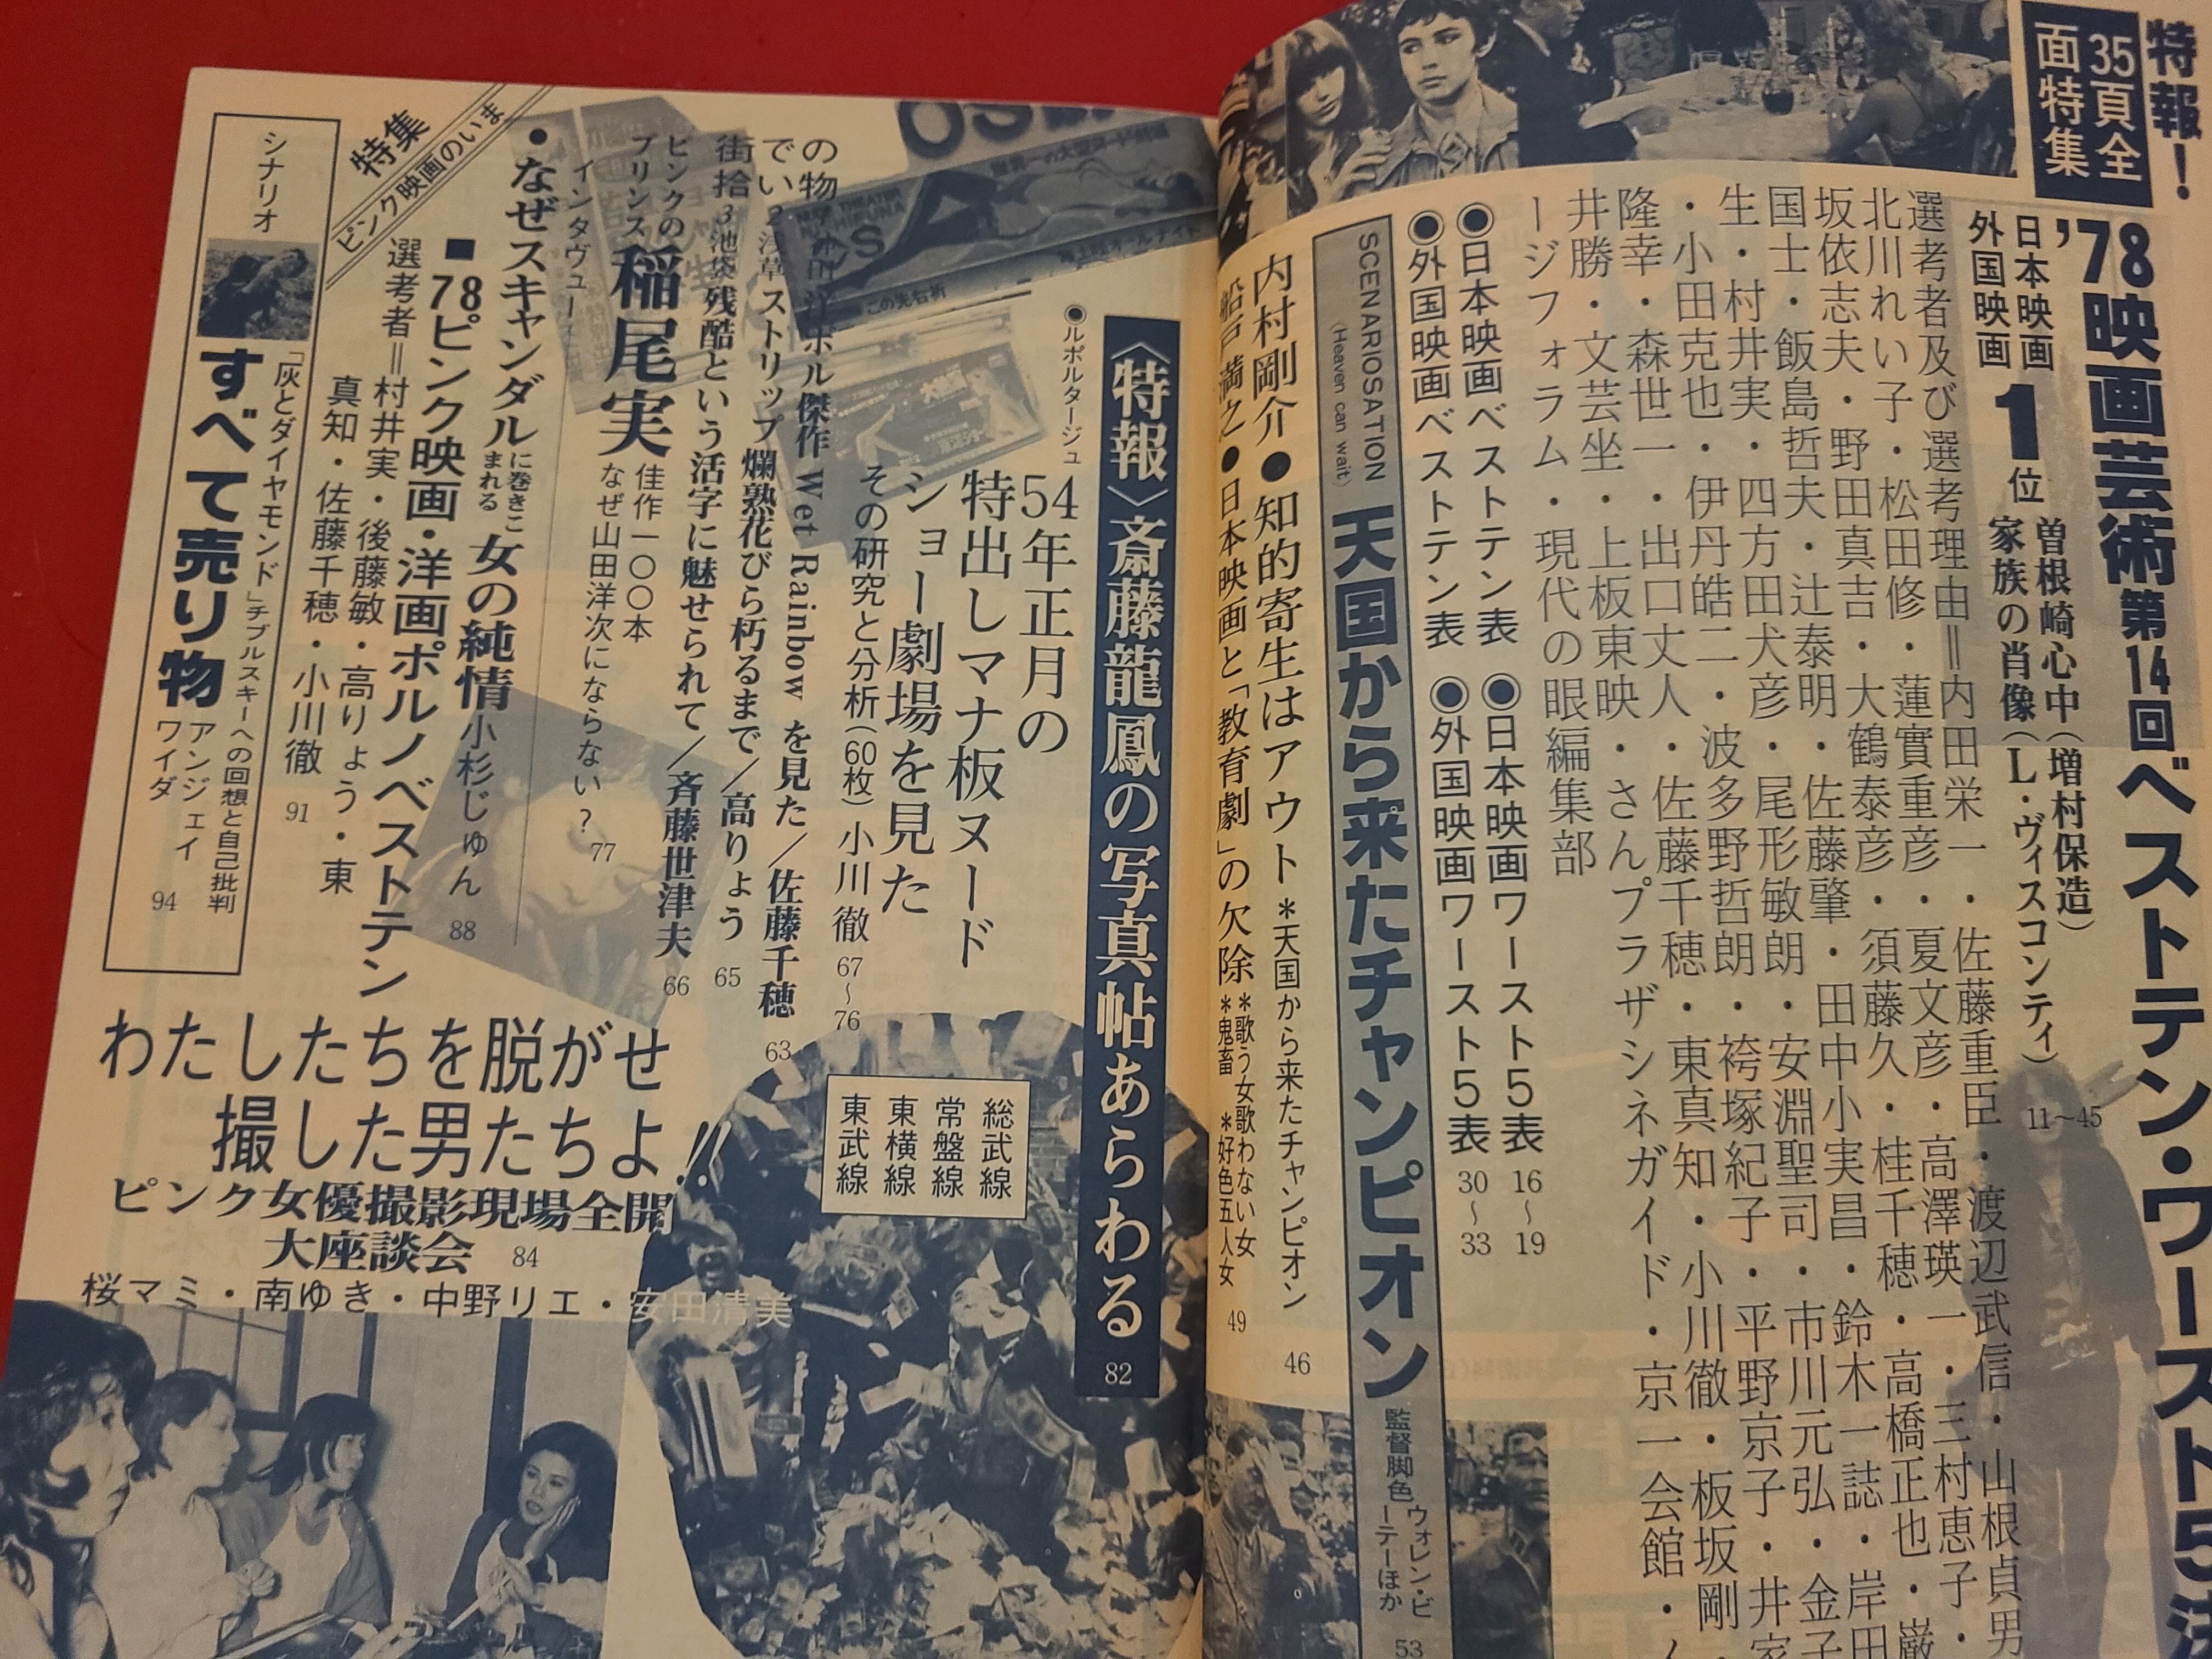 特報！
35頁全
面特集
'78映画芸術第14回ベストテン・ワースト5決
日本映画
外国映画
1位
曽根崎心中（増村保造）
家族の肖像（L・ヴィスコンティ）
11〜45
選考者及び選考理由＝内田栄一・佐藤重臣・渡辺武信・山根貞男
北川れい子・松田修・蓮實重彦・夏文彦・高澤瑛一・三村恵子・
坂依志夫・野田真吉・大鶴泰彦・須藤久・桂千穂・高橋正也・巌
国士・飯島哲夫・辻泰明・佐藤肇・田中小実昌・鈴木一誌・岸田
生・村井実・四方田犬彦・尾形敏朗・安淵聖司・市川元弘・金子
・小田克也・伊丹皓二・波多野哲朗・袴塚紀子・平野京子・井家
隆幸・森世一・出口丈人・佐藤千穂・東真知・小川徹・板坂剛・
井勝・文芸坐・上板東映・さんプラザシネガイド・京一会館・
ージフォラム・現代の眼編集部
◉日本映画ベストテン表
◉日本映画ワースト5表
16〜19
◉外国映画ベストテン表
◉外国映画ワースト5表
30〜33
SCENARIOSATION
(Heaven can wait)
天国から来たチャンピオン
監督脚色
ウォレン・ビ
ーテーほか
53
内村剛介●知的寄生はアウト＊天国から来たチャンピオン
46
船戸満之●日本映画と「教育劇」の欠除
＊歌う女歌わない女
＊鬼畜 ＊好色五人女
49
〈特報〉斎藤龍鳳の写真帖あらわる
82
◉ルポルタージュ
54年正月の
特出しマナ板ヌード
ショー劇場を見た
その研究と分析（60枚）小川徹
67〜76
総武線
常盤線
東横線
東武線
の物
洋ポル傑作 Wet Rainbow を見た／佐藤千穂
63
でい
2浅草
ストリップ 爛熟花びら朽るまで／高りょう
65
街拾
3池袋
残酷という活字に魅せられて／斉藤世津夫
66
ピンクの
プリンス
稲尾実
インタヴュー
佳作一〇〇本
なぜ山田洋次にならない？
77
・なぜスキャンダルに巻きこまれる 女の純情 小杉じゅん
88
■78ピンク映画・洋画ポルノベストテン
選考者＝村井実・後藤敏・高りょう・東
真知・佐藤千穂・小川徹
91
特集
ピンク映画のいま
シナリオ
「灰とダイヤモンド」チブルスキーへの回想と自己批判
すべて売り物
アンジェイ
ワイダ
94
わたしたちを脱がせ
撮した男たちよ!!
ピンク女優撮影現場全開
大座談会
84
桜マミ・南ゆき・中野リエ・安田清美